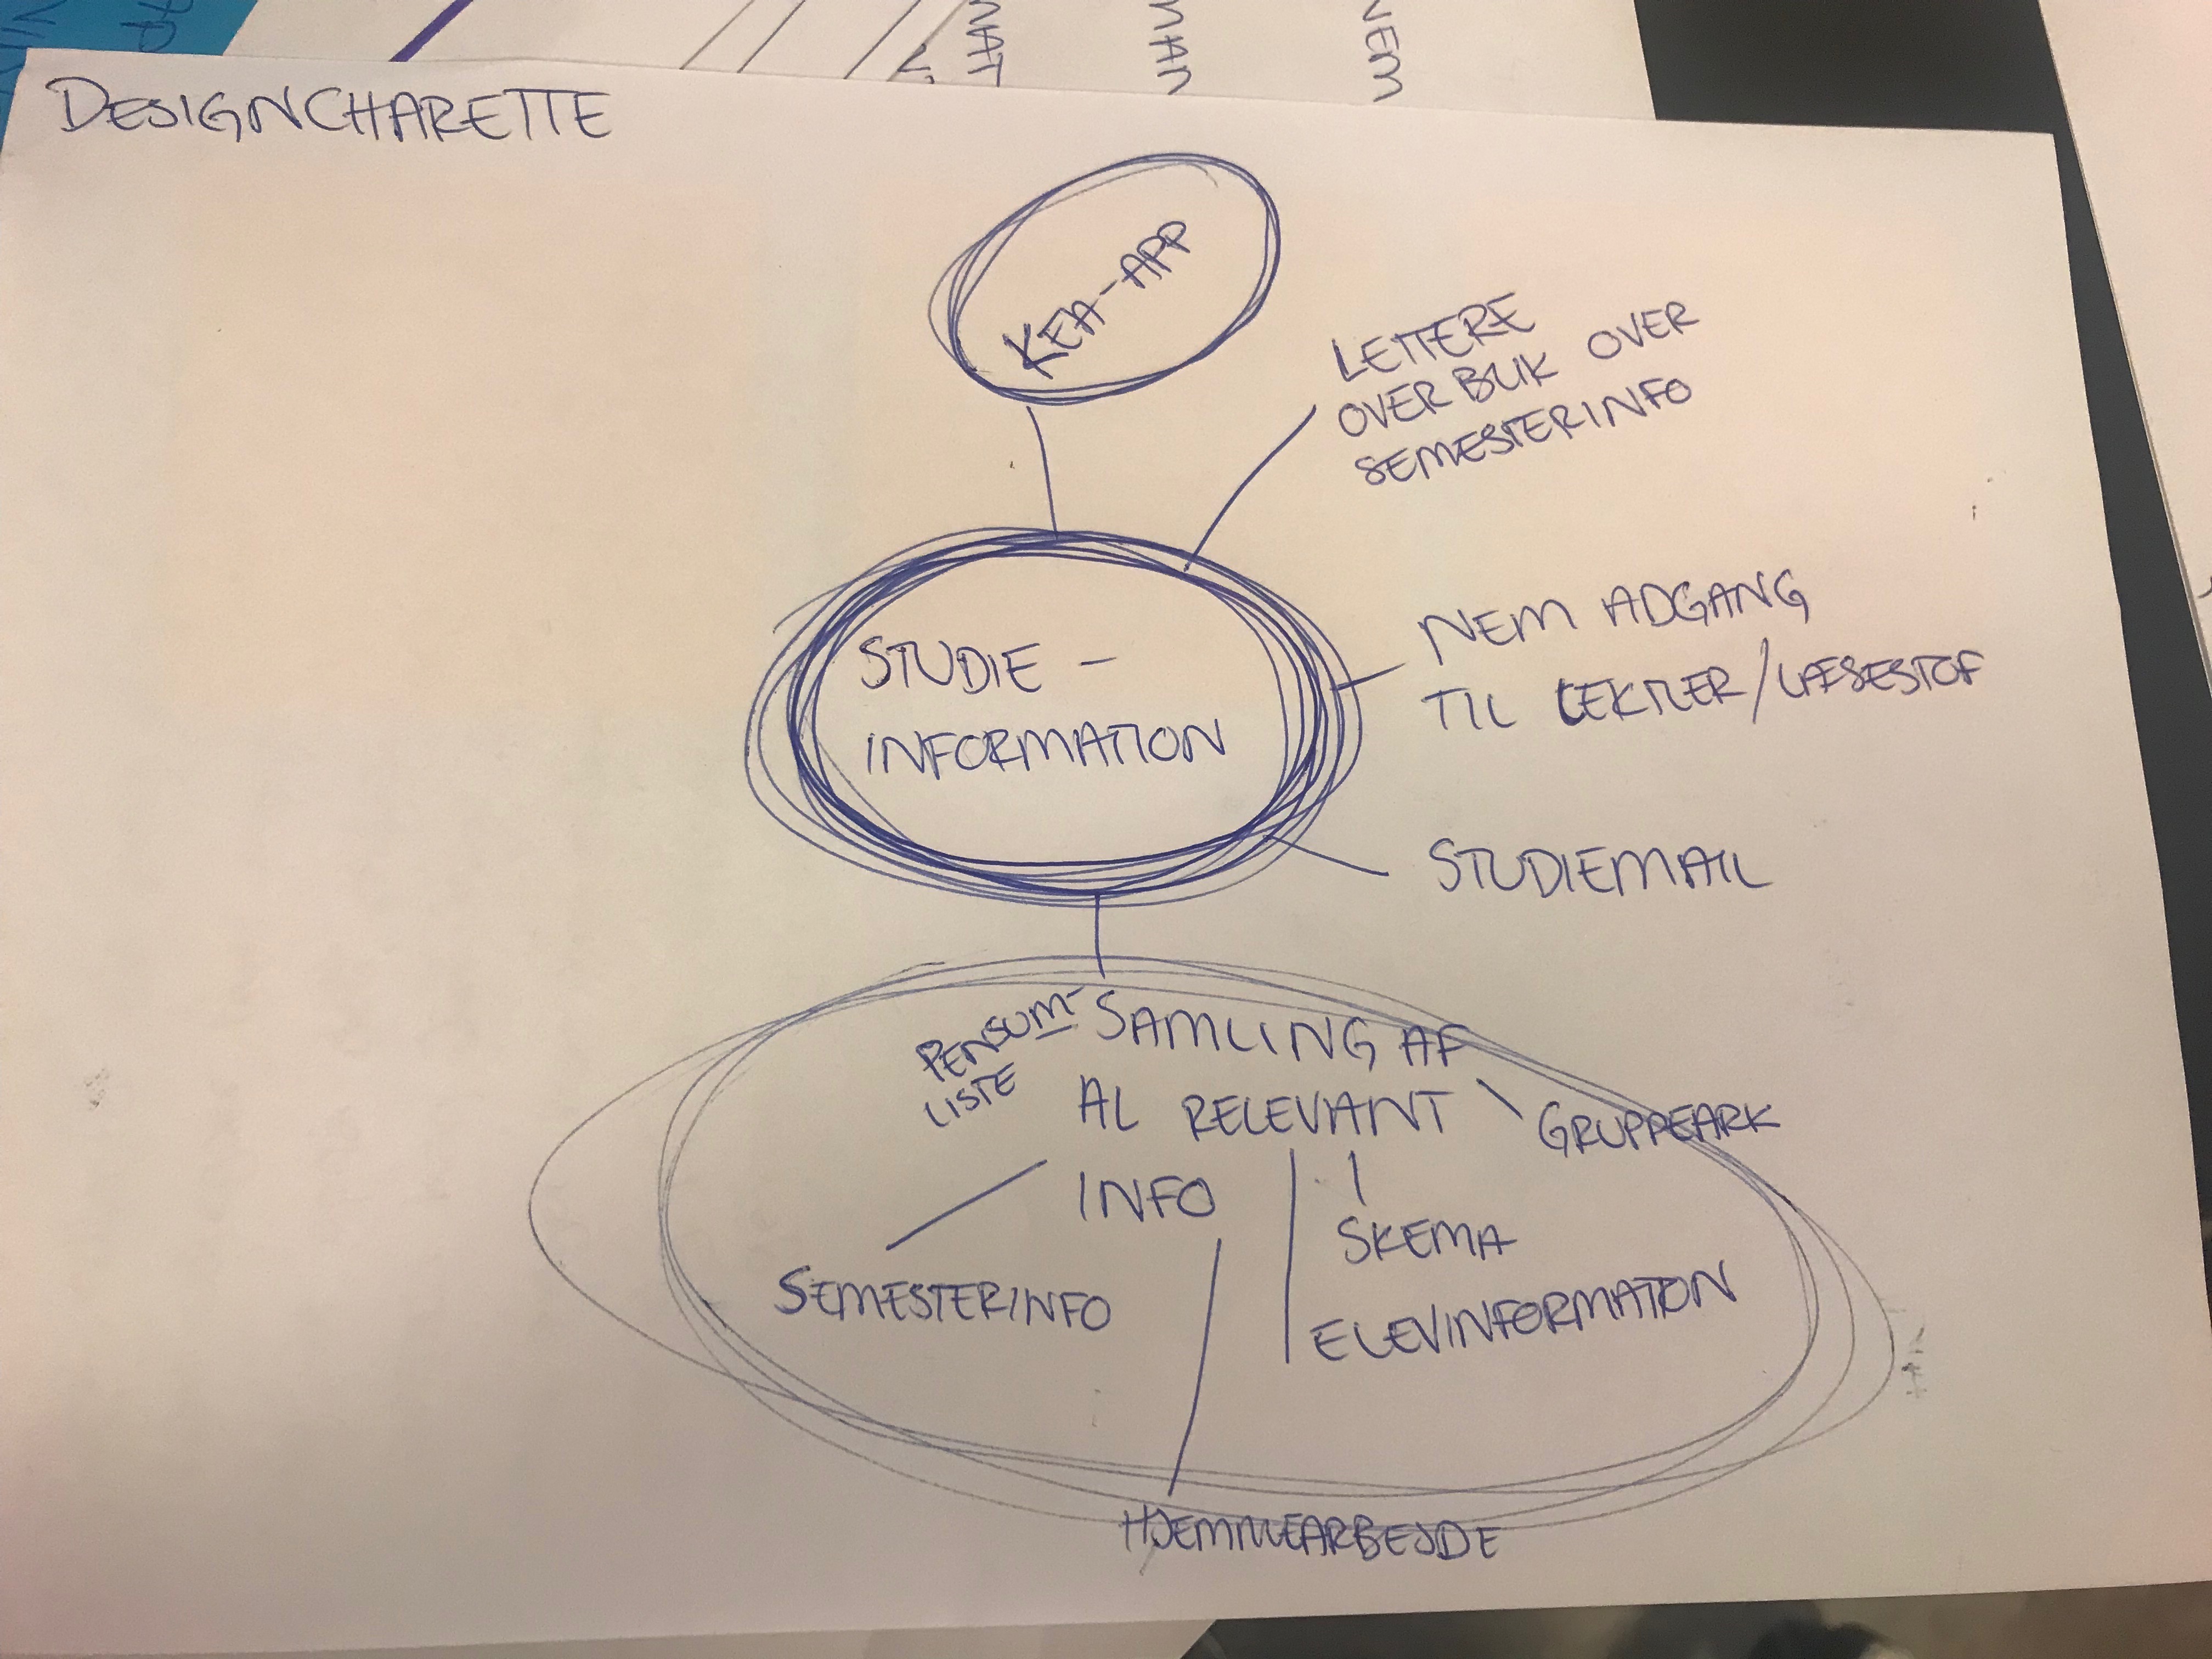 DESIGNCHARETTE
KEA-APP
LETTERE
OVERBLIK OVER
SEMESTERINFO
STUDIE -
INFORMATION
NEM ADGANG
TIL LEKTIER/LÆSESTOF
STUDIEMAIL
PENSUM-
LISTE
SAMLING AF
AL RELEVANT
INFO
GRUPPEARK
SKEMA
SEMESTERINFO
ELEVINFORMATION
HJEMMEARBEJDE
NEM